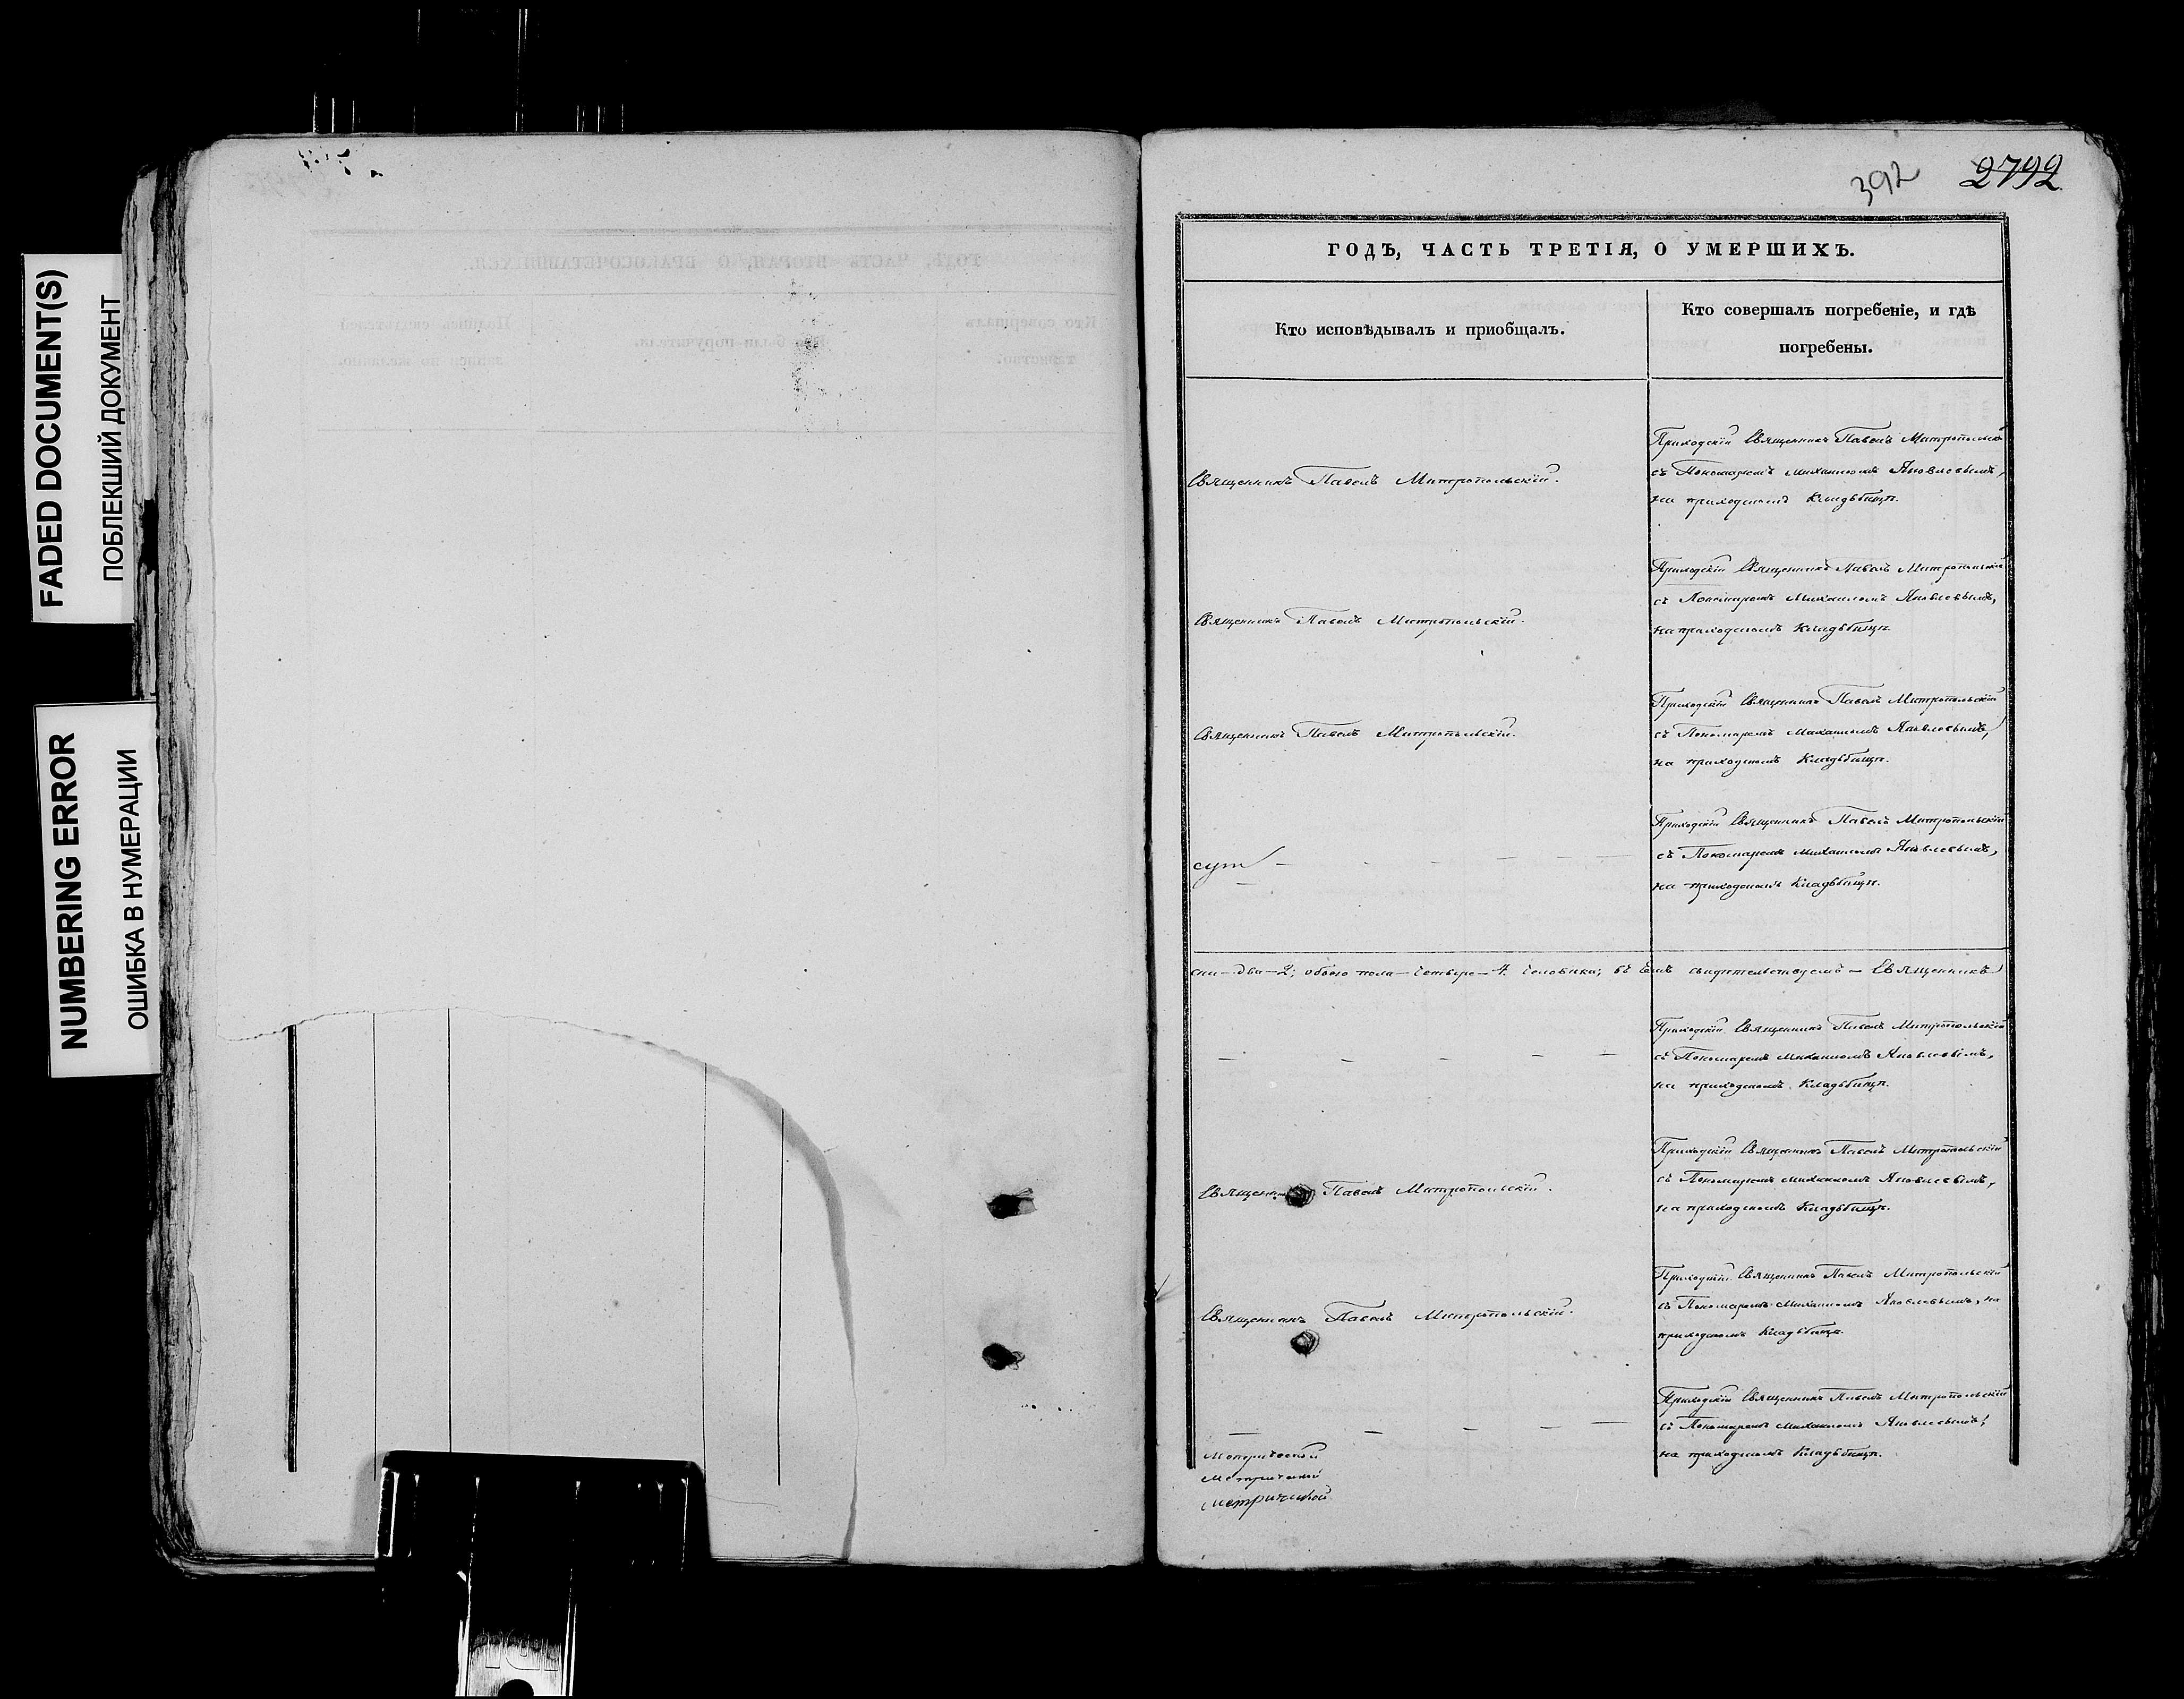 FADED DOCUMENT(S)
ПОБЛЕКШИЙ ДОКУМЕНТ
NUMBERING ERROR
ОШИБКА В НУМЕРАЦИИ
392 2792
ГОДЪ, ЧАСТЬ ТРЕТІЯ, О УМЕРШИХЪ.
Кто исповѣдывалъ и приобщалъ.
Кто совершалъ погребеніе, и гдѣ
погребены.
Священникъ Павелъ Митропольскій.
Приходскій Священникъ Павелъ Митропольскій
съ Пономаремъ Михаиломъ Яковлевымъ,
на приходскомъ Кладбищѣ.
Священникъ Павелъ Митропольскій.
Приходскій Священникъ Павелъ Митропольскій
съ Пономаремъ Михаиломъ Яковлевымъ,
на приходскомъ Кладбищѣ.
Священникъ Павелъ Митропольскій.
Приходскій Священникъ Павелъ Митропольскій
съ Пономаремъ Михаиломъ Яковлевымъ,
на приходскомъ Кладбищѣ.
Приходскій Священникъ Павелъ Митропольскій
съ Пономаремъ Михаиломъ Яковлевымъ,
на приходскомъ Кладбищѣ.
два - 2; обоего пола - четыре - 4 человѣка; въ чемъ свидѣтельствуемъ - Священникъ
Приходскій Священникъ Павелъ Митропольскій
съ Пономаремъ Михаиломъ Яковлевымъ,
на приходскомъ Кладбищѣ.
Священникъ Павелъ Митропольскій.
Приходскій Священникъ Павелъ Митропольскій
съ Пономаремъ Михаиломъ Яковлевымъ,
на приходскомъ Кладбищѣ.
Священникъ Павелъ Митропольскій.
Приходскій Священникъ Павелъ Митропольскій
съ Пономаремъ Михаиломъ Яковлевымъ, на
приходскомъ Кладбищѣ.
Приходскій Священникъ Павелъ Митропольскій
съ Пономаремъ Михаиломъ Яковлевымъ,
на приходскомъ Кладбищѣ.
Метрической
Метрической
метрической